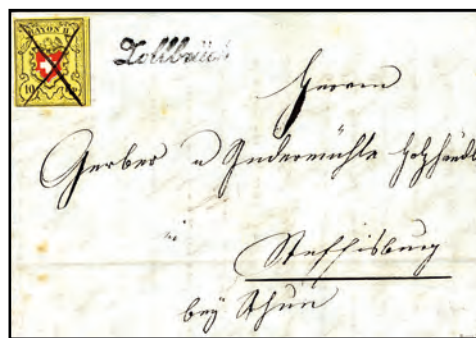 RAYON II
10 Rp.
Zollbrück
Herren
Gerber u Indermühle Holzhändl
in
Steffisburg
bey Thun